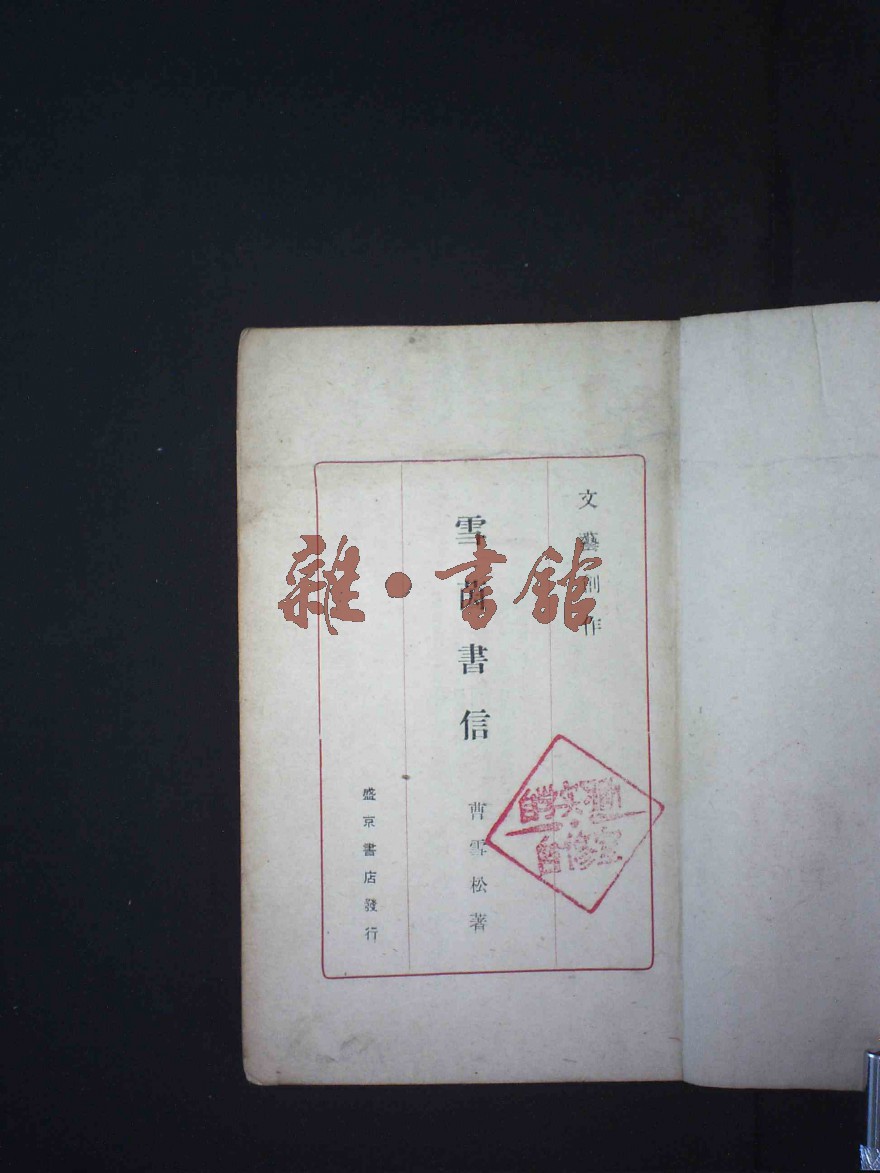 文藝創作
雪茵書信
曹雪松著
盛京書店發行
雜·書館
自修室